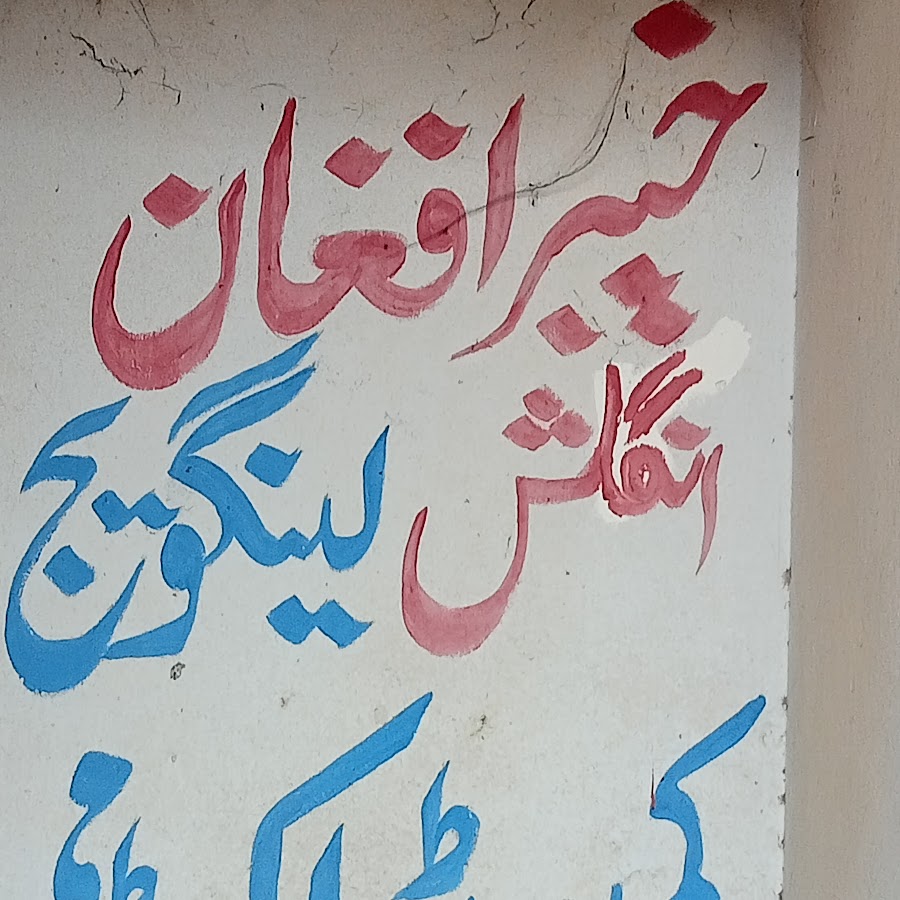 خیبر افغان
انگلش لینگویج